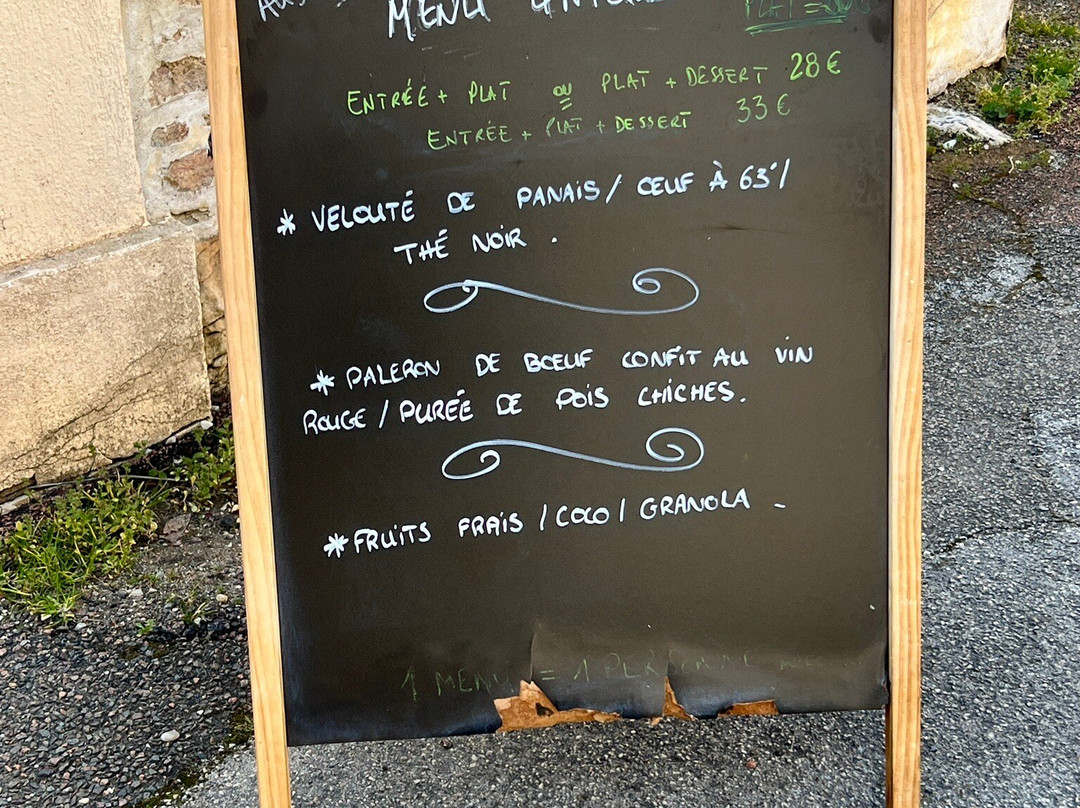 MENU
PLAT =
ENTRÉE + PLAT OU PLAT + DESSERT 28 €
ENTRÉE + PLAT + DESSERT 33 €
* VELOUTÉ DE PANAIS / ŒUF À 63°/
THÉ NOIR .
* PALERON DE BŒUF CONFIT AU VIN
ROUGE / PURÉE DE POIS CHICHES.
* FRUITS FRAIS / COCO / GRANOLA -
1 MENU = 1 PERSONNE